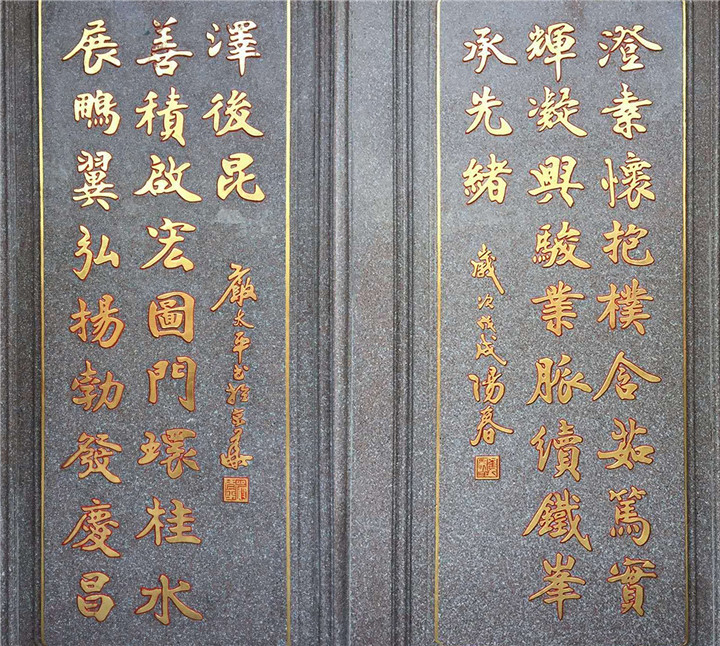 澄素懷抱樸含茹篤實
輝凝興駿業脈續鐵峯
承先緒
歲次戊戌陽春
展鵬翼弘揚勃發慶昌
善積啟宏圖門環桂水
澤後昆
嚴太平书於京華